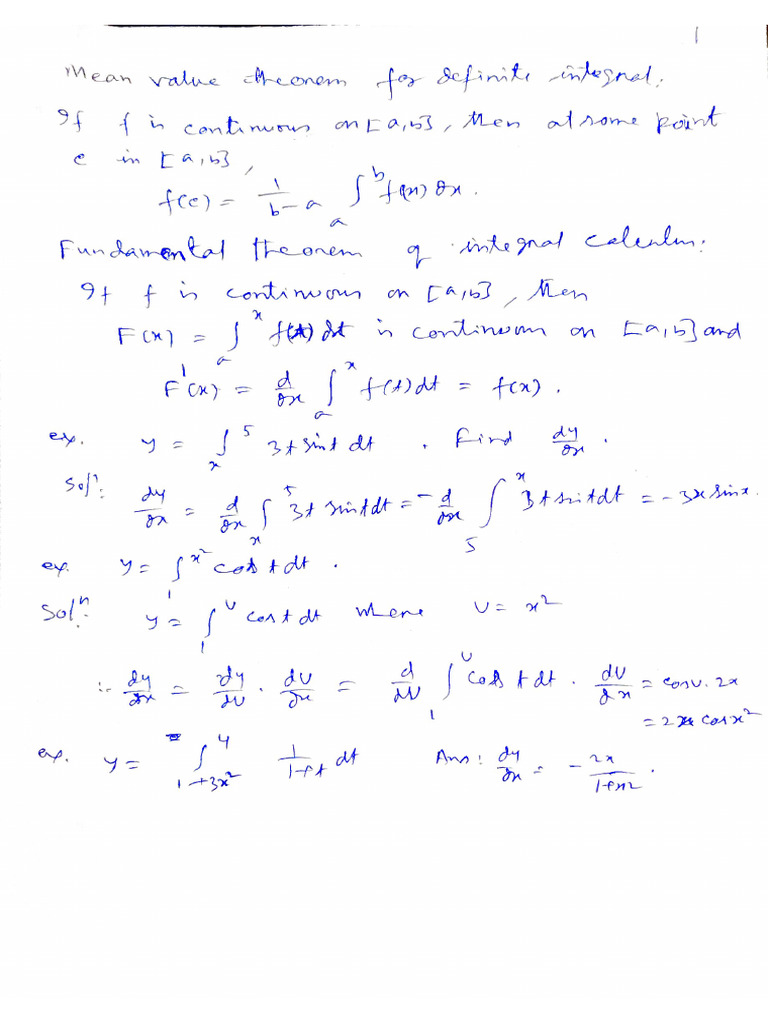 1
Mean value theorem for definite integral:
If f is continuous on [a,b], then at some point
c in [a,b],
f(c) = 1/(b-a) ∫_a^b f(x) dx.
Fundamental theorem of integral calculus:
If f is continuous on [a,b], then
F(x) = ∫_a^x f(t) dt is continuous on [a,b] and
F'(x) = d/dx ∫_a^x f(t) dt = f(x).
ex. y = ∫_x^5 3t sint dt. Find dy/dx.
Solⁿ: dy/dx = d/dx ∫_x^5 3t sint dt = - d/dx ∫_5^x 3t sint dt = -3x sinx.
ex. y = ∫_1^x² cos t dt.
Solⁿ: y = ∫_1^u cos t dt where u = x²
∴ dy/dx = dy/du · du/dx = d/du ∫_1^u cos t dt · du/dx = cosu. 2x
= 2x cosx²
ex. y = ∫_{1+3x²}^4 1/(1+t) dt Ans: dy/dx = - 2x/(1+x²).